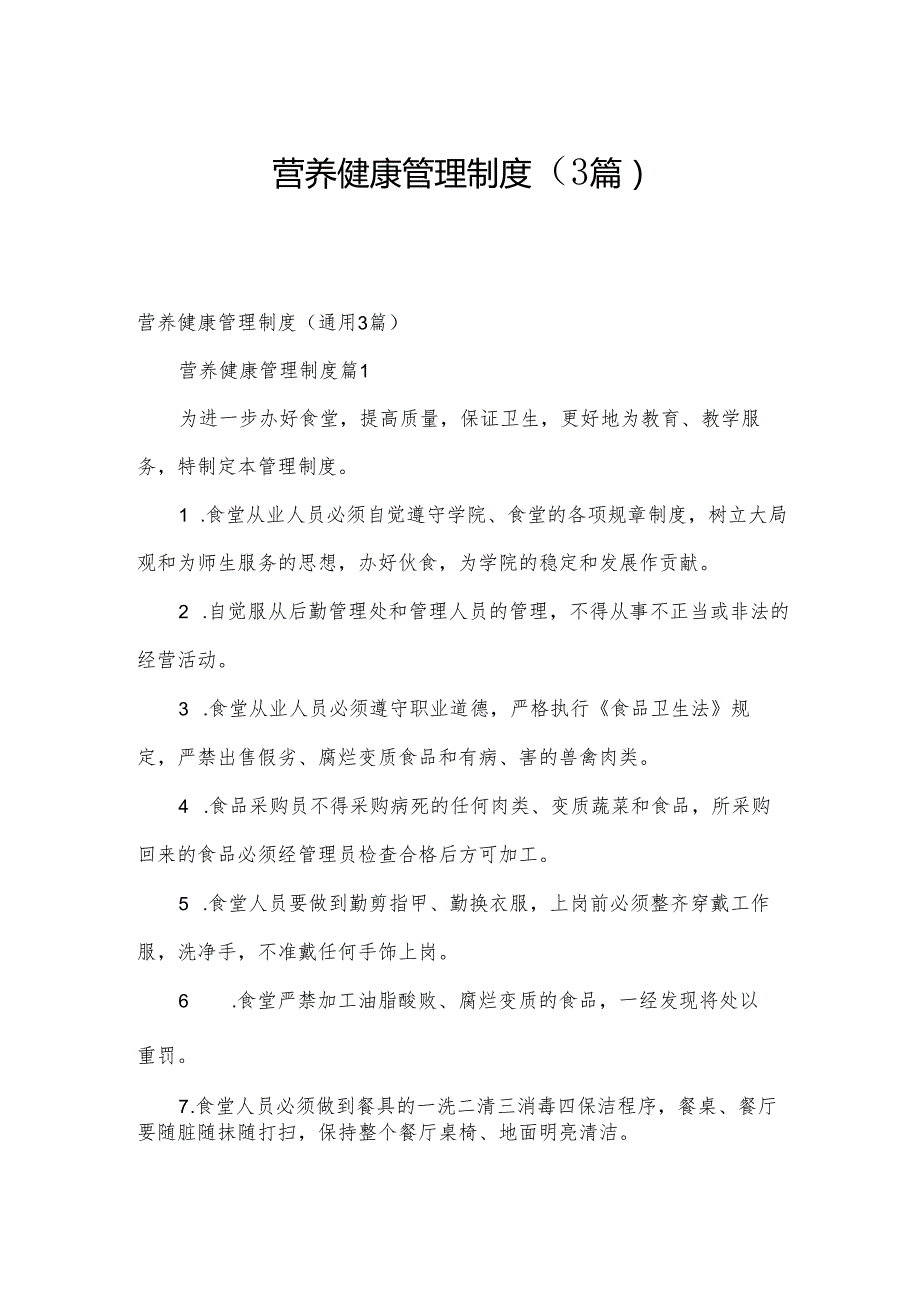 营养健康管理制度（3篇）
营养健康管理制度（通用3篇）
营养健康管理制度篇1
为进一步办好食堂，提高质量，保证卫生，更好地为教育、教学服
务，特制定本管理制度。
1 .食堂从业人员必须自觉遵守学院、食堂的各项规章制度，树立大局
观和为师生服务的思想，办好伙食，为学院的稳定和发展作贡献。
2 .自觉服从后勤管理处和管理人员的管理，不得从事不正当或非法的
经营活动。
3 .食堂从业人员必须遵守职业道德，严格执行《食品卫生法》规
定，严禁出售假劣、腐烂变质食品和有病、害的兽禽肉类。
4 .食品采购员不得采购病死的任何肉类、变质蔬菜和食品，所采购
回来的食品必须经管理员检查合格后方可加工。
5 .食堂人员要做到勤剪指甲、勤换衣服，上岗前必须整齐穿戴工作
服，洗净手，不准戴任何手饰上岗。
6 .食堂严禁加工油脂酸败、腐烂变质的食品，一经发现将处以
重罚。
7.食堂人员必须做到餐具的一洗二清三消毒四保洁程序，餐桌、餐厅
要随脏随抹随打扫，保持整个餐厅桌椅、地面明亮清洁。